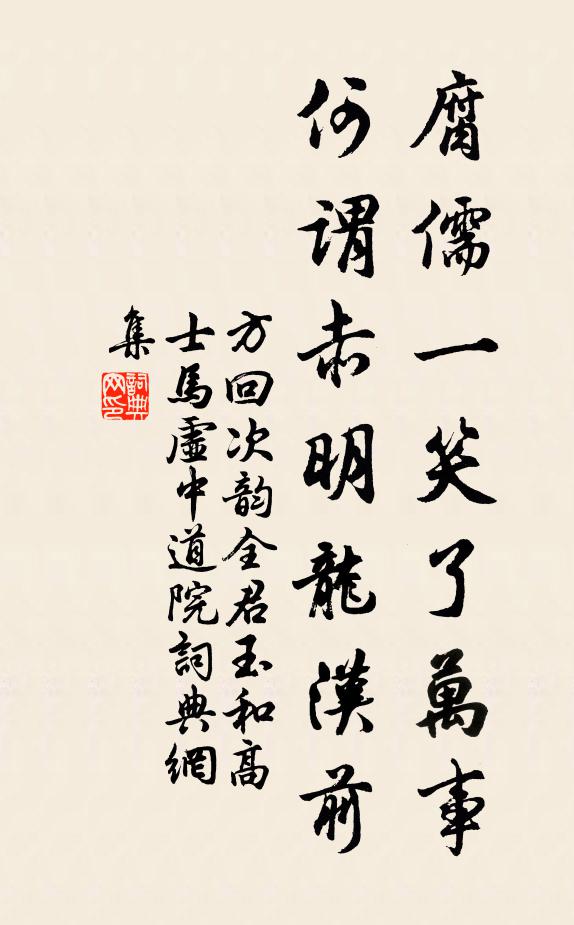 腐儒一笑了萬事
何謂赤明龍漢前
方回次韵全君玉和高
士馬虛中道院詞典網
集
詞典網印